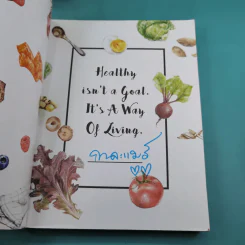 Healthy
isn't a Goal.
It's A Way
Of Living.